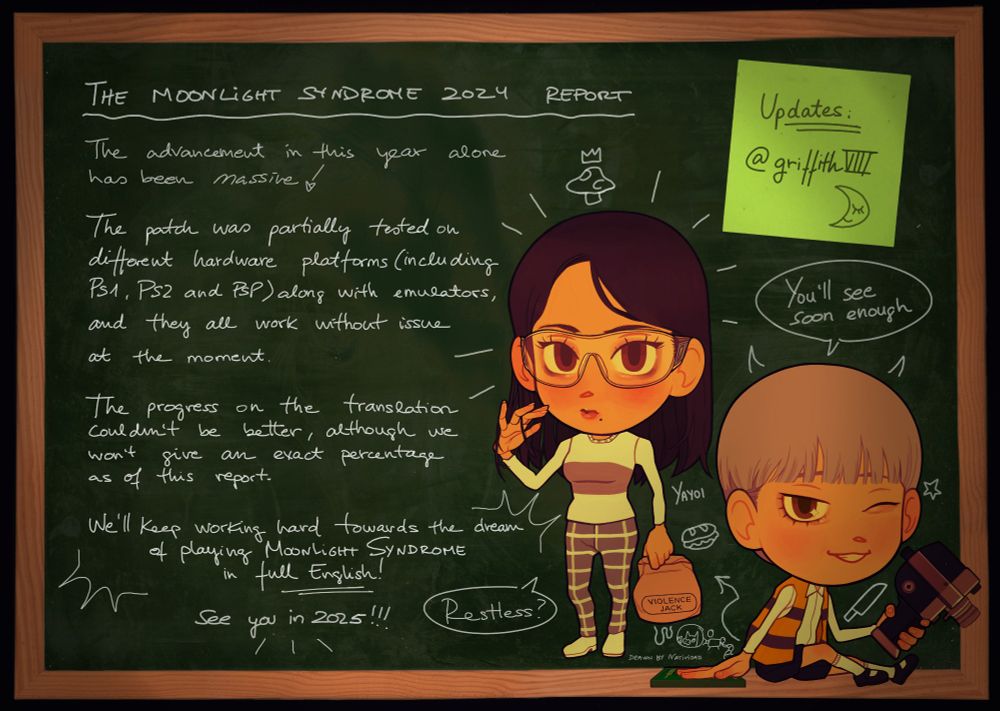 THE MOONLIGHT SYNDROME 2024 REPORT
The advancement in this year alone
has been massive!
The patch was partially tested on
different hardware platforms (including
PS1, PS2 and PSP) along with emulators,
and they all work without issue
at the moment.
The progress on the translation
couldn't be better, although we
won't give an exact percentage
as of this report.
We'll keep working hard towards the dream
of playing MOONLIGHT SYNDROME
in full English!
See you in 2025!!!
Updates:
@griffithVIII
You'll see
soon enough
YAYOI
VIOLENCE
JACK
Restless?
DRAWN BY NATIVIDAD